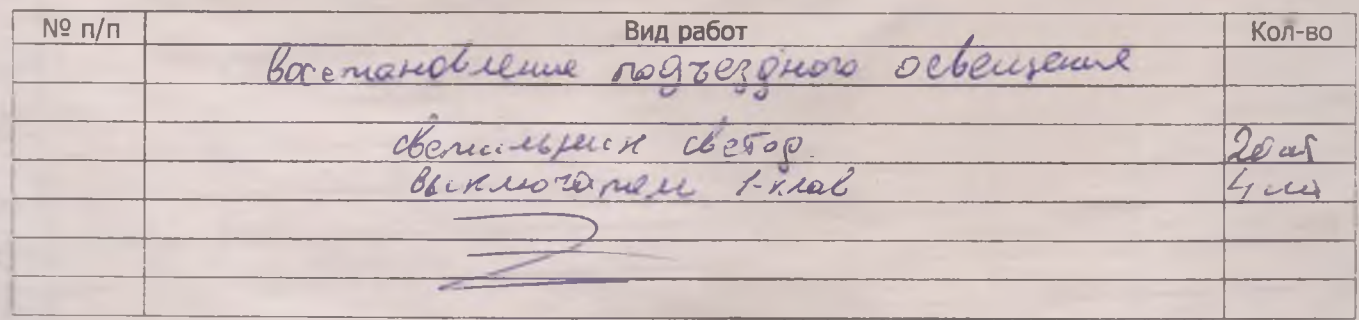 № п/п Вид работ Кол-во
Восстановление подъездного освещения
светильник светод. 20 шт
выключатели 1-клав 4 шт